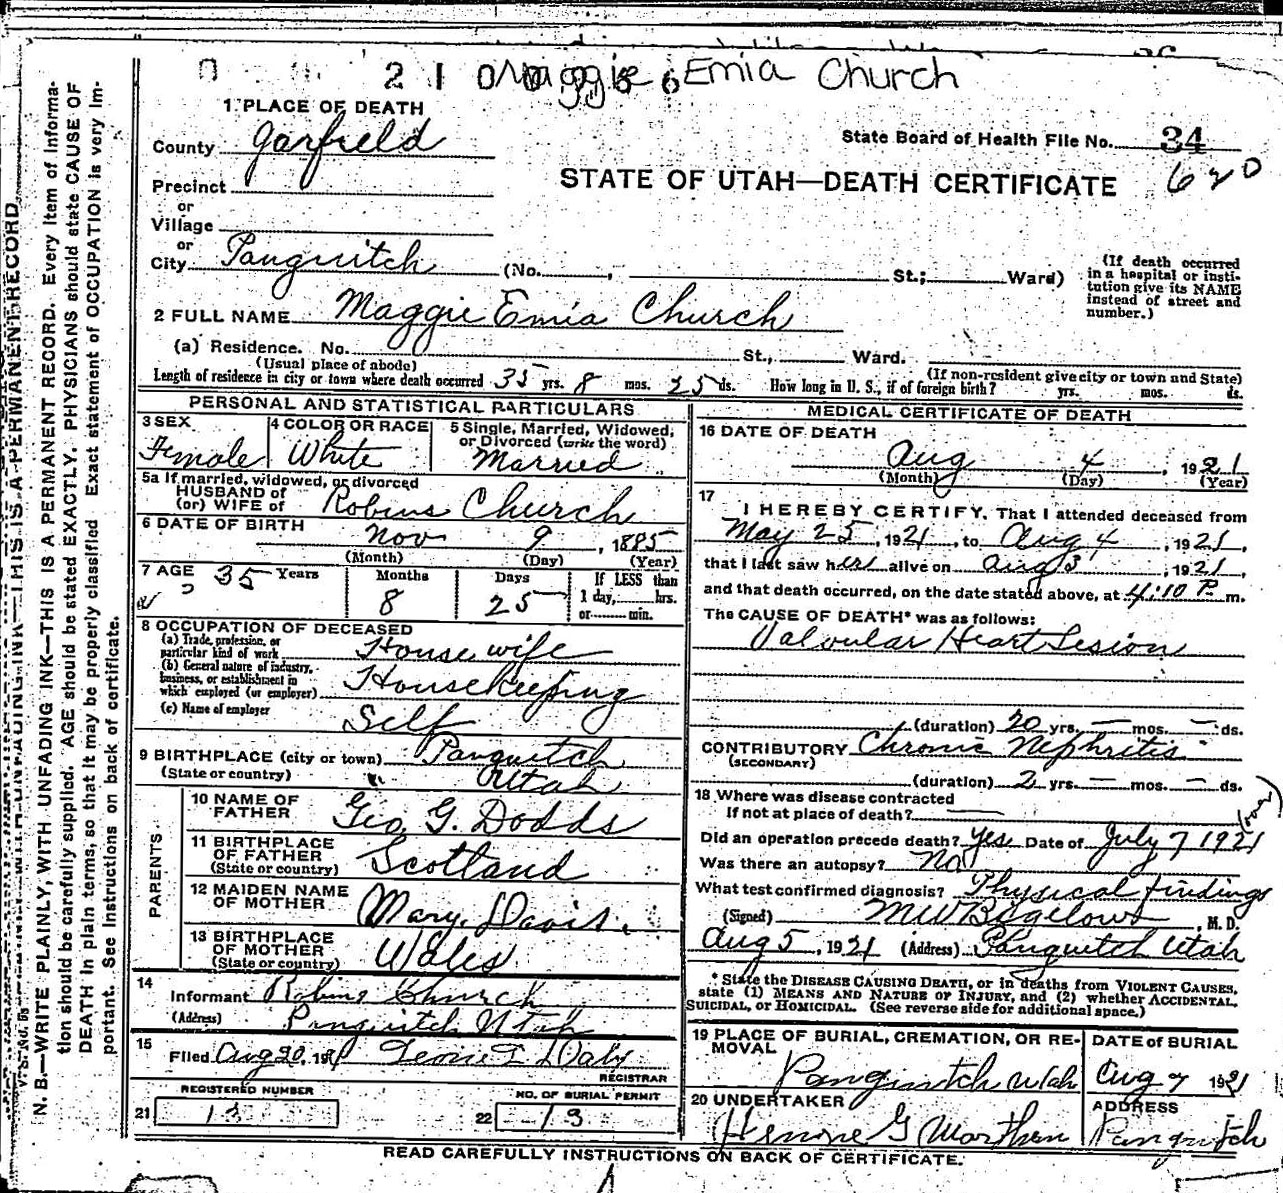 2 1 0 0 6 6 Maggie Emia Church
1 PLACE OF DEATH
County Garfield
State Board of Health File No. 34
620
Precinct
STATE OF UTAH—DEATH CERTIFICATE
or
Village
or
City Panguitch (No. , St.; Ward)
(If death occurred in a hospital or institution give its NAME instead of street and number.)
2 FULL NAME Maggie Emia Church
(a) Residence. No. St., Ward.
(Usual place of abode) (If non-resident give city or town and State)
Length of residence in city or town where death occurred 35 yrs. 8 mos. 25 ds. How long in U. S., if of foreign birth? yrs. mos. ds.
PERSONAL AND STATISTICAL PARTICULARS
3 SEX Female
4 COLOR OR RACE White
5 Single, Married, Widowed, or Divorced (write the word) Married
5a If married, widowed, or divorced
HUSBAND of
(or) WIFE of Robins Church
6 DATE OF BIRTH Nov 9, 1885
(Month) (Day) (Year)
7 AGE 35 Years 8 Months 25 Days
If LESS than
1 day, hrs.
or min.
8 OCCUPATION OF DECEASED
(a) Trade, profession, or
particular kind of work Housewife
(b) General nature of industry,
business, or establishment in
which employed (or employer) Housekeeping
(c) Name of employer Self
9 BIRTHPLACE (city or town) Panguitch
(State or country) Utah
PARENTS
10 NAME OF
FATHER Geo. G. Dodds
11 BIRTHPLACE
OF FATHER
(State or country) Scotland
12 MAIDEN NAME
OF MOTHER Mary Davis
13 BIRTHPLACE
OF MOTHER
(State or country) Wales
14
Informant Robins Church
(Address) Panguitch Utah
15
Filed Aug 20, 1921 Daly
REGISTRAR
REGISTERED NUMBER
21 13
NO. OF BURIAL PERMIT
22 13
MEDICAL CERTIFICATE OF DEATH
16 DATE OF DEATH
Aug 4, 1921
(Month) (Day) (Year)
17
I HEREBY CERTIFY, That I attended deceased from
May 25, 1921, to Aug 4, 1921,
that I last saw her alive on Aug 3, 1921,
and that death occurred, on the date stated above, at 4:10 P. m.
The CAUSE OF DEATH* was as follows:
Valvular Heart Lesion
(duration) 20 yrs. — mos. — ds.
CONTRIBUTORY Chronic Nephritis
(SECONDARY)
(duration) 2 yrs. — mos. — ds.
18 Where was disease contracted
If not at place of death?
Did an operation precede death? Yes Date of July 7 1921
Was there an autopsy? No
What test confirmed diagnosis? Physical findings
(Signed) M W Bigelow, M. D.
Aug 5, 1921 (Address) Panguitch Utah
* State the DISEASE CAUSING DEATH, or in deaths from VIOLENT CAUSES,
state (1) MEANS AND NATURE OF INJURY, and (2) whether ACCIDENTAL,
SUICIDAL, or HOMICIDAL. (See reverse side for additional space.)
19 PLACE OF BURIAL, CREMATION, OR REMOVAL
Panguitch Utah
DATE of BURIAL
Aug 7 1921
20 UNDERTAKER
G Worthen
ADDRESS
Panguitch
READ CAREFULLY INSTRUCTIONS ON BACK OF CERTIFICATE.
N. B.—WRITE PLAINLY, WITH UNFADING INK—THIS IS A PERMANENT RECORD. Every item of information should be carefully supplied. AGE should be stated EXACTLY. PHYSICIANS should state CAUSE OF DEATH in plain terms, so that it may be properly classified. Exact statement of OCCUPATION is very important. See instructions on back of certificate.